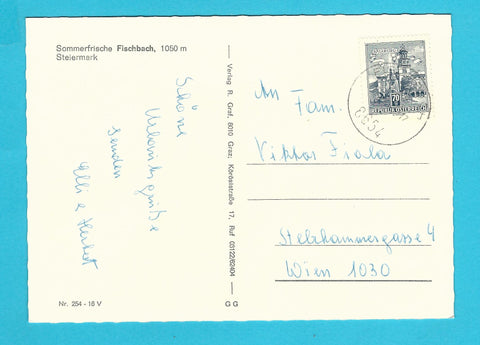 Sommerfrische Fischbach, 1050 m
Steiermark
Schöne
Urlaubsgrüße
senden
Elli u Herbert
Nr. 254 - 16 V
Verlag R. Graf, 8010 Graz, Körösistraße 17, Ruf 03122/62404
G G
70
REPUBLIK ÖSTERREICH
8654
An Fam.
Viktor Fiala
Stelzhammergasse 4
Wien 1030